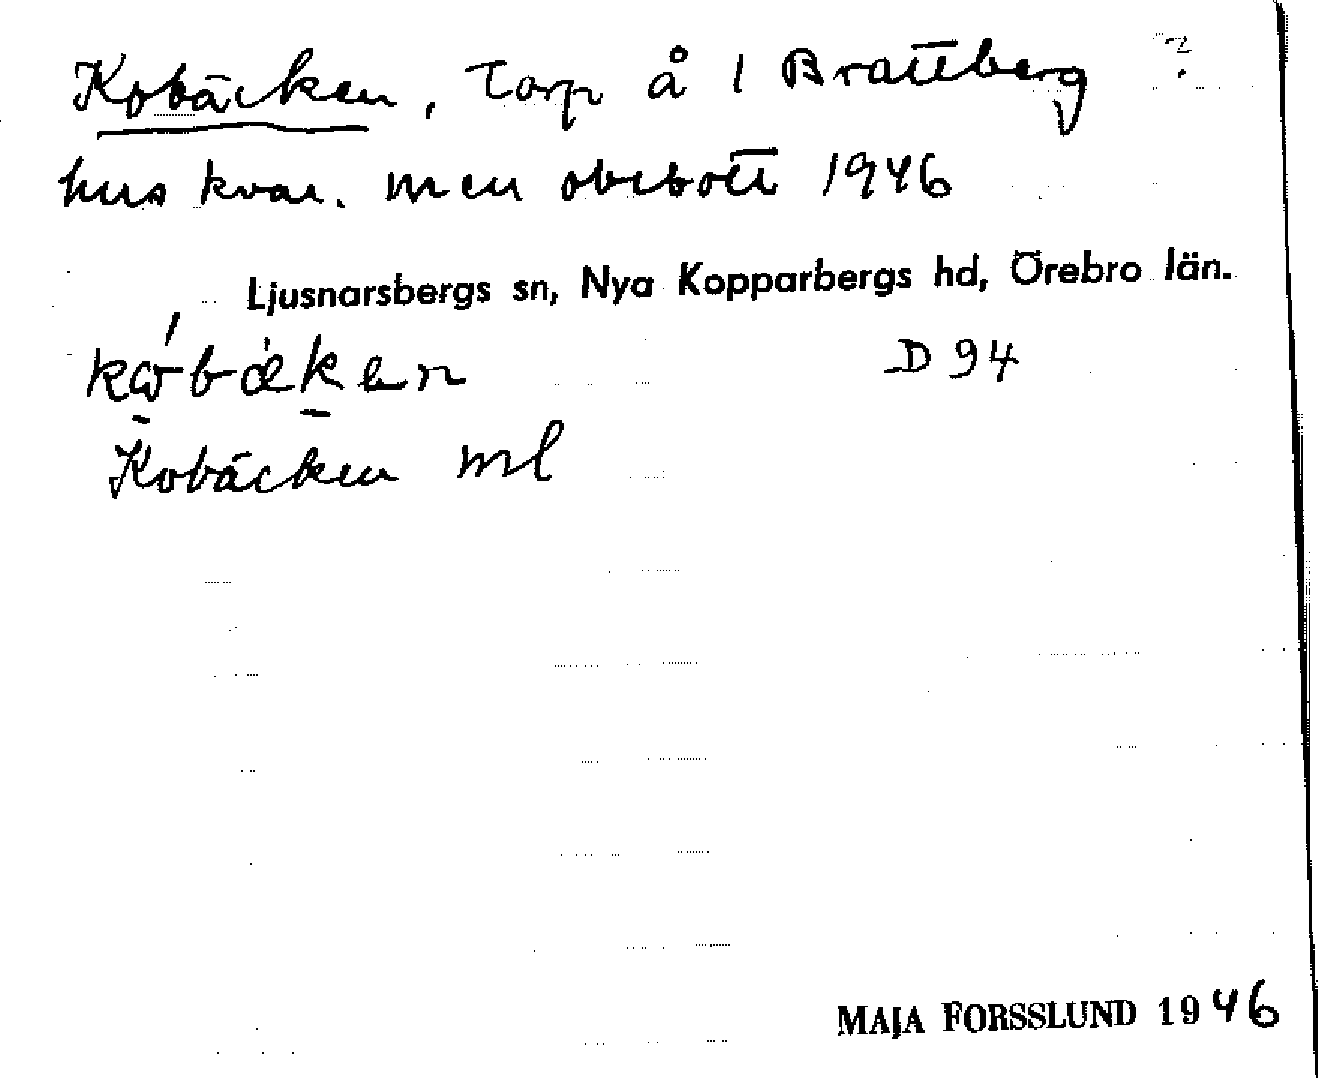 Kobäcken, torp å 1 Brattberg ?
hus kvar. men obebott 1946
Ljusnarsbergs sn, Nya Kopparbergs hd, Örebro län.
D 94
Kobäcken ml
MAJA FORSSLUND 1946